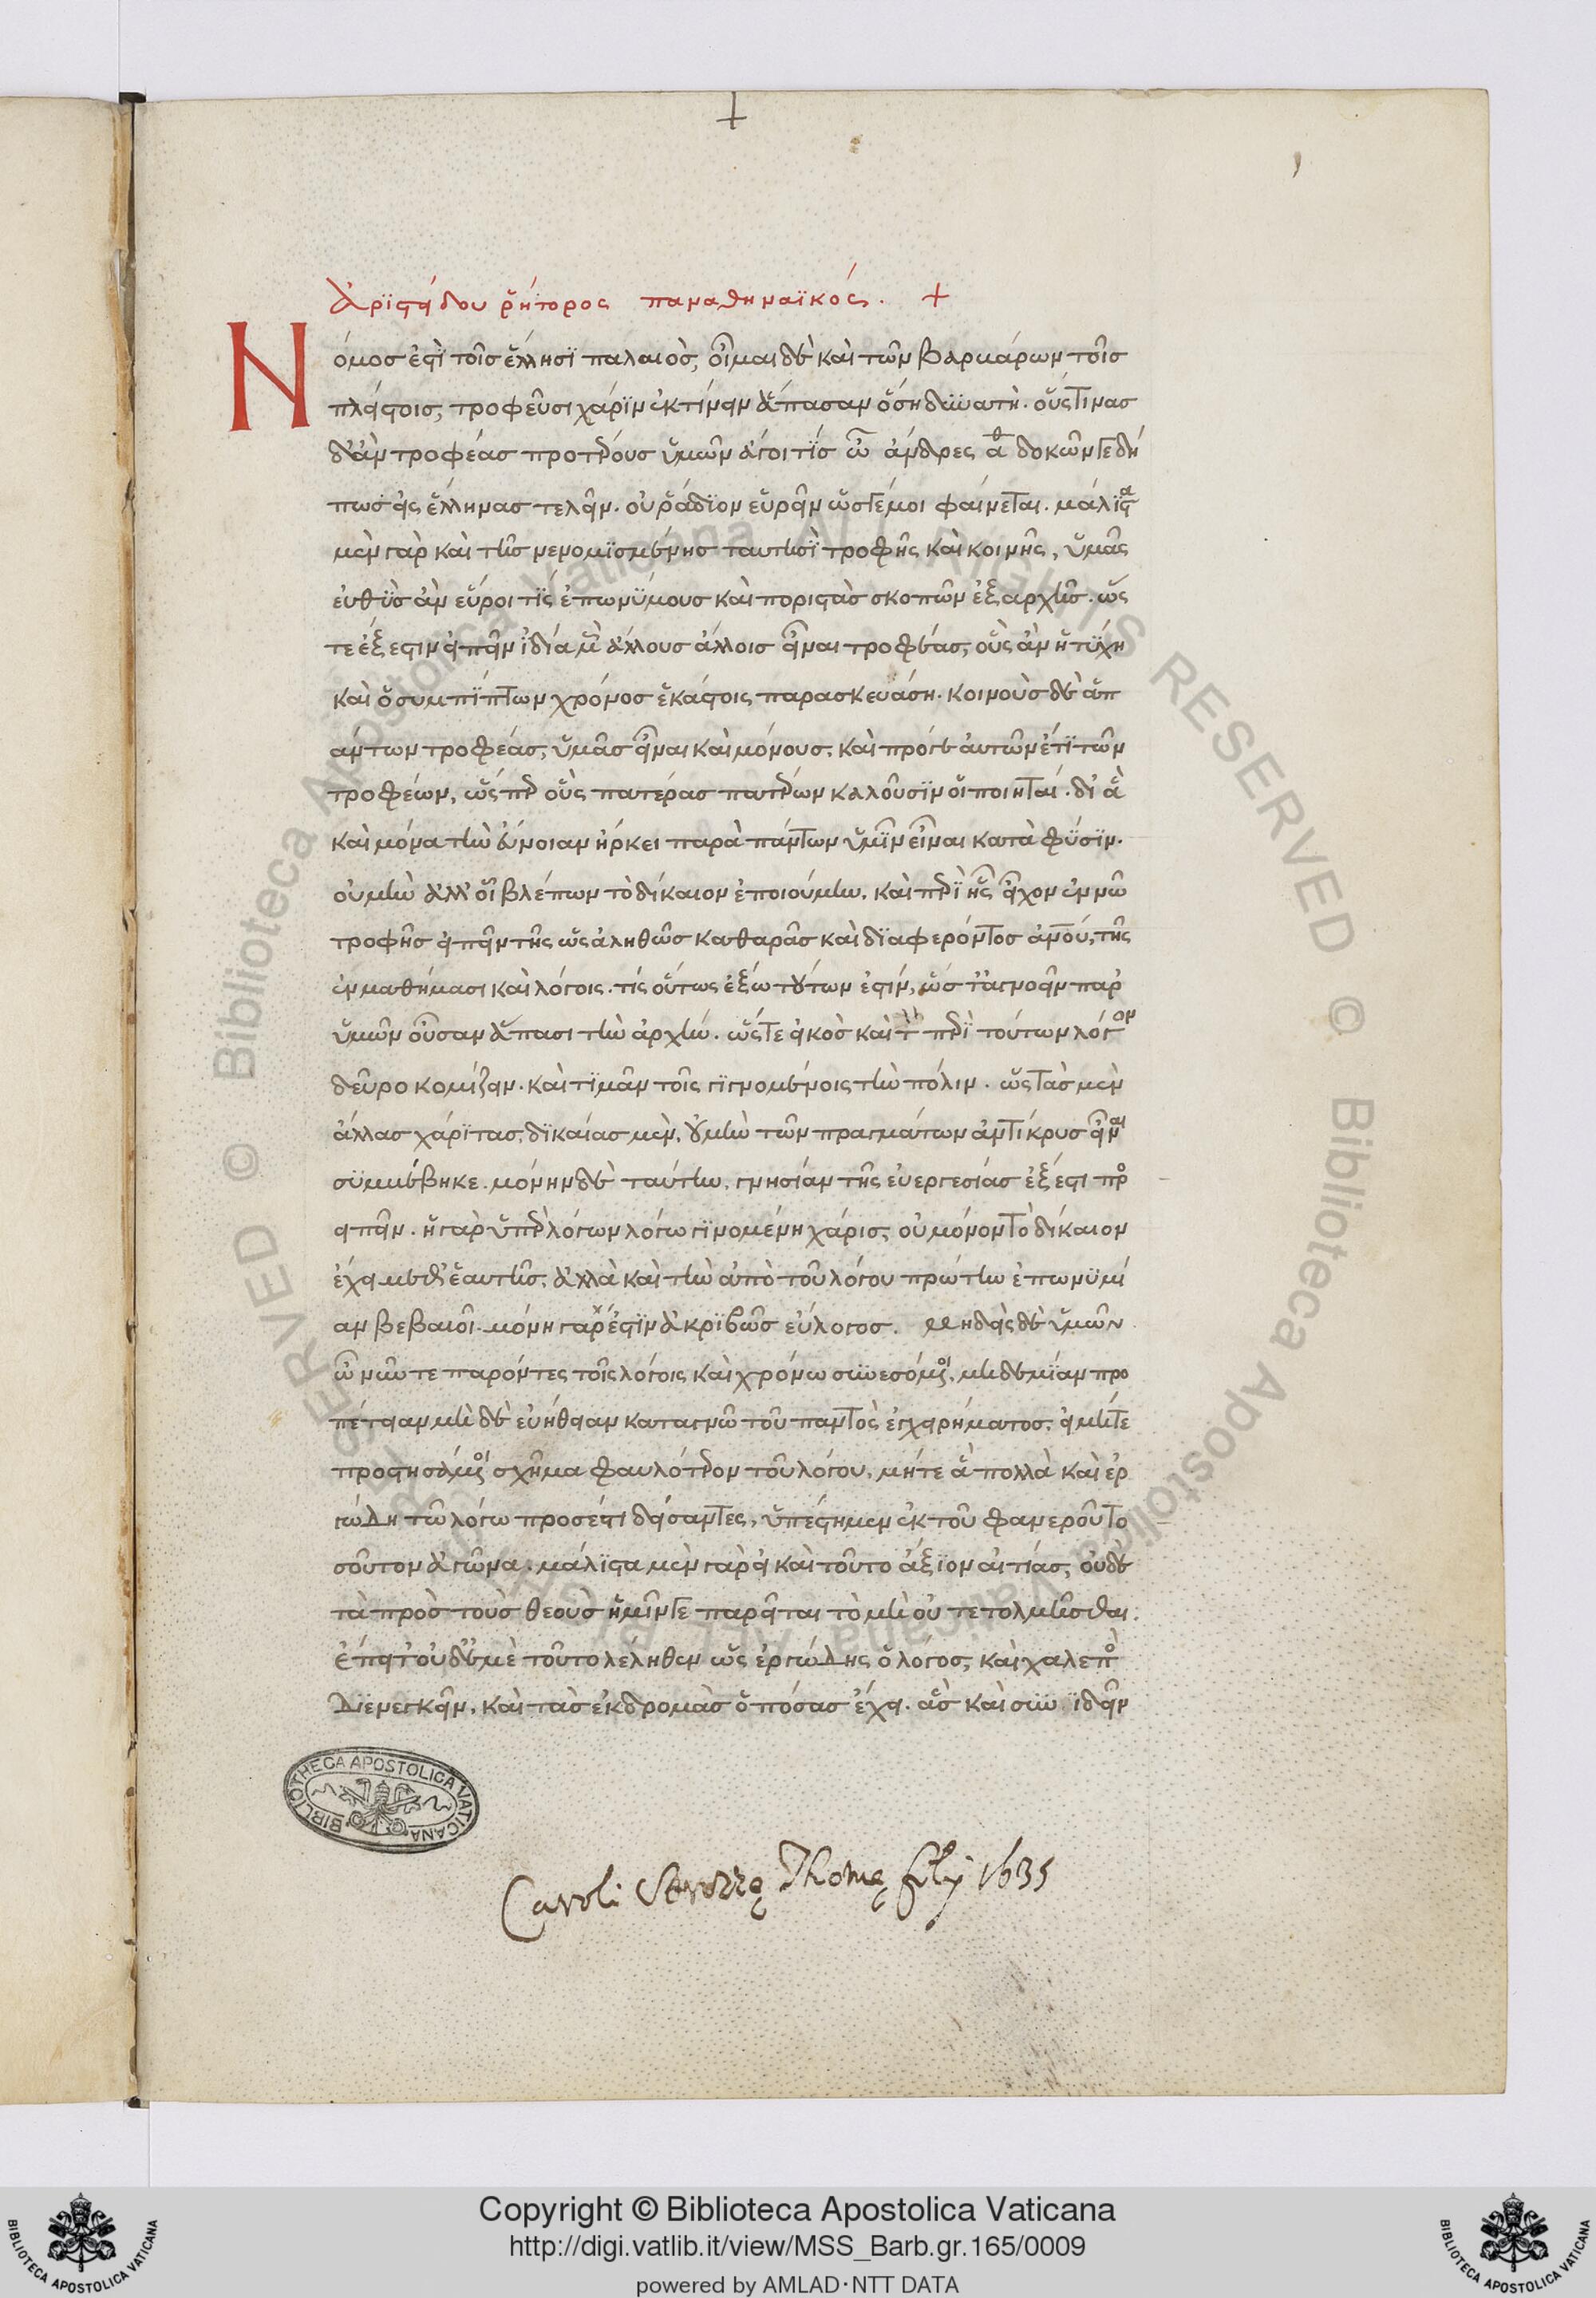 Ἀριστείδου ῥήτορος παναθηναϊκός. +
Νόμος ἐστὶ τοῖς ἕλλησι παλαιὸς, οἶμαι δὲ καὶ τῶν βαρβάρων τοῖς
πλείστοις, τροφεῦσι χάριν ἐκτίνειν ἅπασαν ὅση δυνατὴ. οὕστινας
δ' ἂν τροφέας προτέρους ὑμῶν ἄγοι τίς ὦ ἄνδρες ἀθ δοκῶν γε δή
πως εἰς ἕλληνας τελεῖν. οὐ ῥάδιον εὑρεῖν ὥς γ' ἐμοι φαίνεται. μάλιστα
μὲν γὰρ καὶ τῆς νενομισμένης ταυτησὶ τροφῆς καὶ κοινῆς, ὑμᾶς
εὐθὺς ἂν εὕροι τίς ἐπωνύμους καὶ ποριστὰς σκοπῶν ἐξαρχῆς. ὥς
τε ἔξεστιν εἰπεῖν ἰδία μὲν ἄλλους ἄλλοις εἶναι τροφέας, οὓς ἂν ἡ τύχη
καὶ ὁ συμπίπτων χρόνος ἑκάστοις παρασκευάση. κοινοὺς δὲ ἁπ
άντων τροφέας, ὑμᾶς εἶναι καὶ μόνους, καὶ πρόγε αὐτῶν ἔτι τῶν
τροφέων, ὥς περ οὓς πατέρας πατέρων καλοῦσιν οἱ ποιηταί. δι' ἃ
καὶ μόνα τὴν εὔνοιαν ἤρκει παρὰ πάντων ὑμῖν εἶναι κατὰ φύσιν.
οὐ μὴν ἀλλ' οἷ βλέπων τὸ δίκαιον ἐποιούμην, καὶ περὶ ἧς εἶχον ἐν νῶ
τροφῆς εἰπεῖν τῆς ὡς ἀληθῶς καθαρᾶς καὶ διαφερόντος ἀνοὐ, τῆς
ἐν μαθήμασι καὶ λόγοις. τίς οὕτως ἔξω τούτων ἐστίν, ὥστ' ἀγνοεῖν παρ'
ὑμῶν οὖσαν ἅπασι τὴν ἀρχήν. ὥστε εἰκὸς καὶ τὸν περὶ τούτων λόγον
δεῦρο κομίζειν. καὶ τιμᾶν τοῖς γιγνομένοις τὴν πόλιν. ὡς τὰς μὲν
ἄλλας χάριτας, δικαίας μὲν, οὐ μὴν τῶν πραγμάτων ἀντίκρυς εἶναι
συμβέβηκε. μόνην δὲ ταύτην, γνησίαν τῆς εὐεργεσίας ἔξεστι προς
ειπεῖν. ἡ γὰρ ὑπὲρ λόγων λόγω γινομένη χάρις, οὐ μόνον τὸ δίκαιον
ἔχει μεθ' ἑαυτῆς, ἀλλὰ καὶ τὴν ἀπὸ τοῦ λόγου πρώτην ἐπωνυμί
αν βεβαιοῖ. μόνη γάρ ἐστιν ἀκριβῶς εὔλογος. μηδεὶς δὲ ὑμῶν
ὦ νῦν τε παρόντες τοῖς λόγοις καὶ χρόνω συνεσόμενοι, μηδεμίαν προ
πέτειαν μὴ δὲ εὐήθειαν καταγνῶ τοῦ παντὸς ἐγχειρήματος, εἰ μήτε
προστησάμενοι σχῆμα φαυλότερον τοῦ λόγου, μήτε ἃ πολλὰ καὶ ἐρ
γώδη τῶ λόγω προσέστι δείσαντες, ὑπέστημεν ἐκ τοῦ φανεροῦ το
σοῦτον ἀγῶνα. μάλιστα μὲν γὰρ εἰ καὶ τοῦτο ἄξιον αἰτίας, οὐδὲ
τὰ πρὸς τοὺς θεοὺς ἡμῖν γε παρεῖται τὸ μὴ οὐ τετολμῆσθαι.
ἔπειτ' οὐδὲ με τοῦτο λέληθεν ὡς ἐργώδης ὁ λόγος, καὶ χαλεπὸς
διενεγκεῖν, καὶ τὰς ἐκδρομὰς ὁπόσας ἔχει. ἃς καὶ συνιδεῖν
BIBLIOTHECA APOSTOLICA VATICANA
Caroli Strozzę Thomę filij 1635
© Biblioteca Apostolica Vaticana ALL RIGHTS RESERVED © Biblioteca Apostolica Vaticana ALL RIGHTS RESERVED
Copyright © Biblioteca Apostolica Vaticana
http://digi.vatlib.it/view/MSS_Barb.gr.165/0009
powered by AMLAD·NTT DATA
BIBLIOTECA APOSTOLICA VATICANA
BIBLIOTECA APOSTOLICA VATICANA